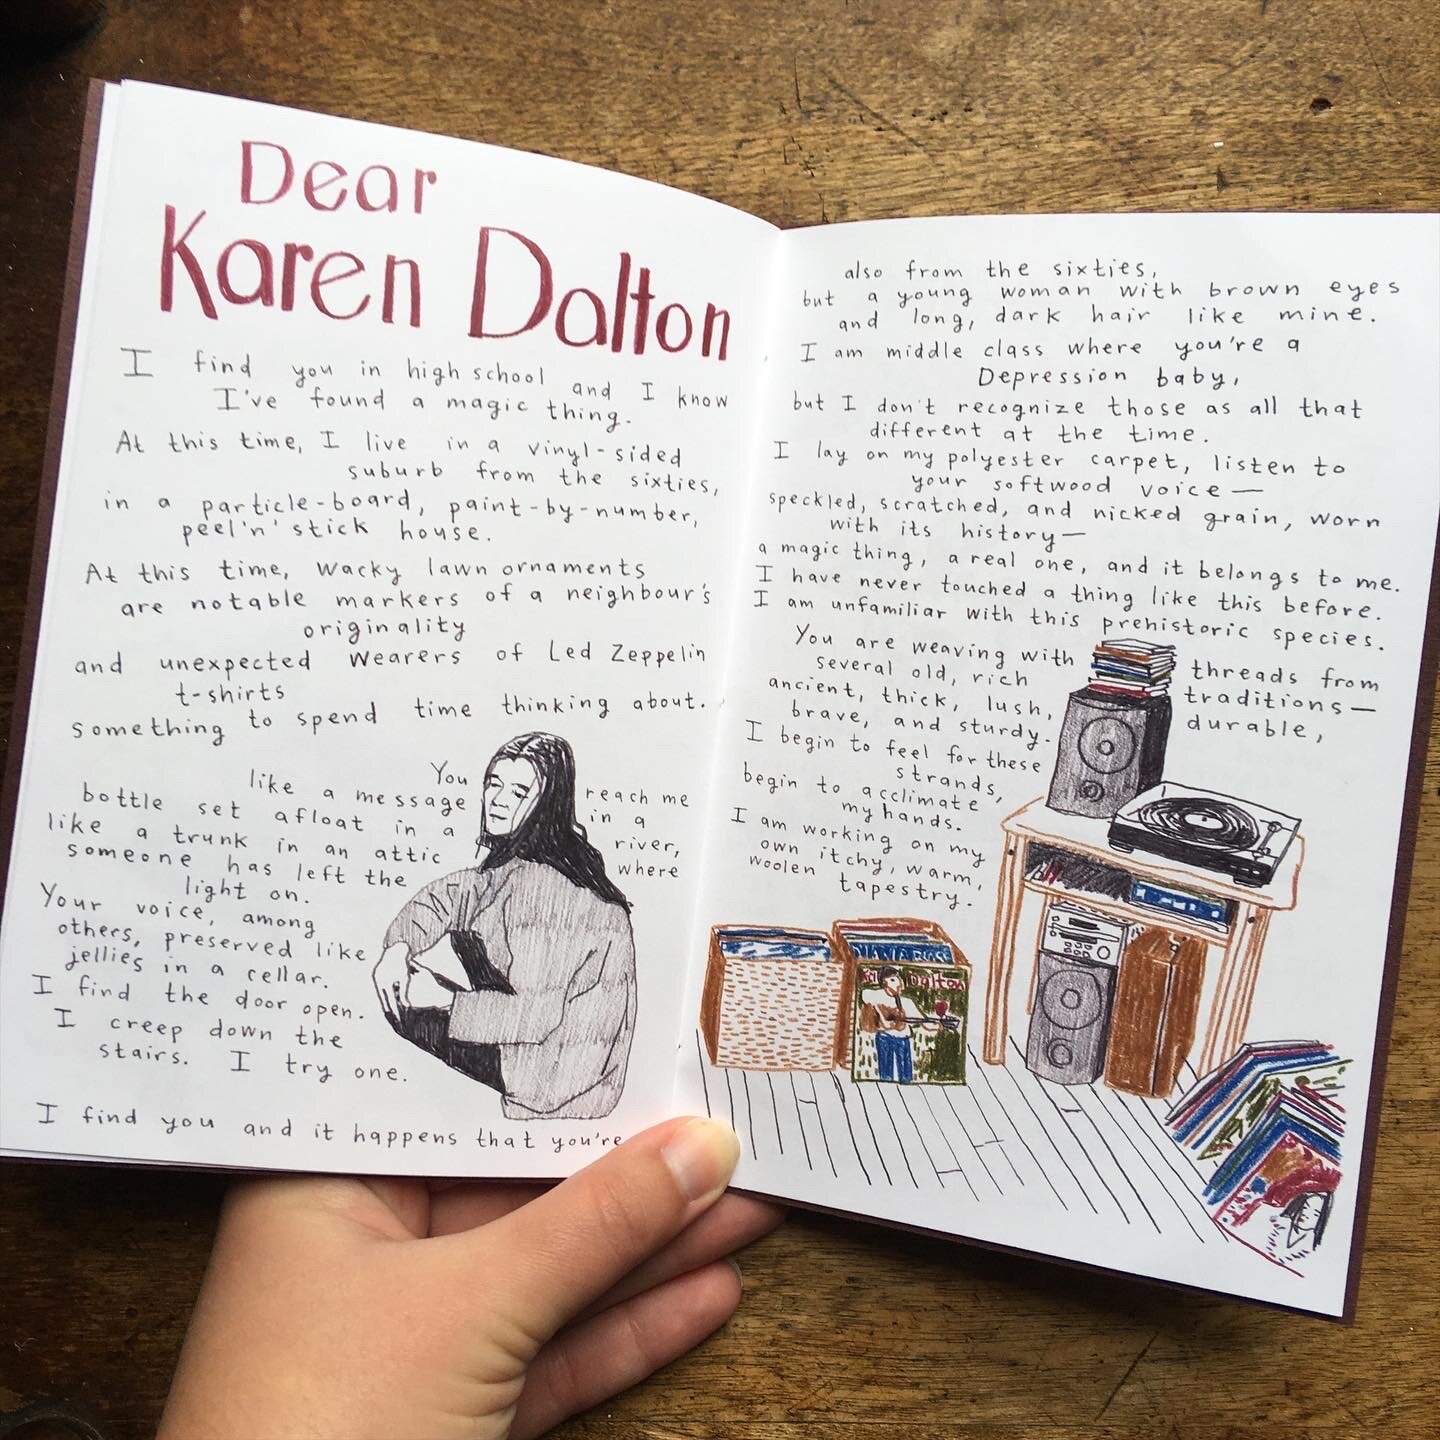 Dear
Karen Dalton
I find you in high school and I know
I've found a magic thing.
At this time, I live in a vinyl-sided
suburb from the sixties,
in a particle-board, paint-by-number,
peel 'n' stick house.
At this time, wacky lawn ornaments
are notable markers of a neighbour's
originality
and unexpected wearers of Led Zeppelin
t-shirts
something to spend time thinking about.
You reach me
like a message in a
bottle set afloat in a river,
like a trunk in an attic where
someone has left the
light on.
Your voice, among
others, preserved like
jellies in a cellar.
I find the door open.
I creep down the
stairs. I try one.
I find you and it happens that you're
also from the sixties,
but a young woman with brown eyes
and long, dark hair like mine.
I am middle class where you're a
Depression baby,
but I don't recognize those as all that
different at the time.
I lay on my polyester carpet, listen to
your softwood voice—
speckled, scratched, and nicked grain, worn
with its history—
a magic thing, a real one, and it belongs to me.
I have never touched a thing like this before.
I am unfamiliar with this prehistoric species.
You are weaving with threads from
several old, rich traditions—
ancient, thick, lush, durable,
brave, and sturdy.
I begin to feel for these
strands,
begin to acclimate
my hands.
I am working on my
own itchy, warm,
woolen tapestry.
Dalton